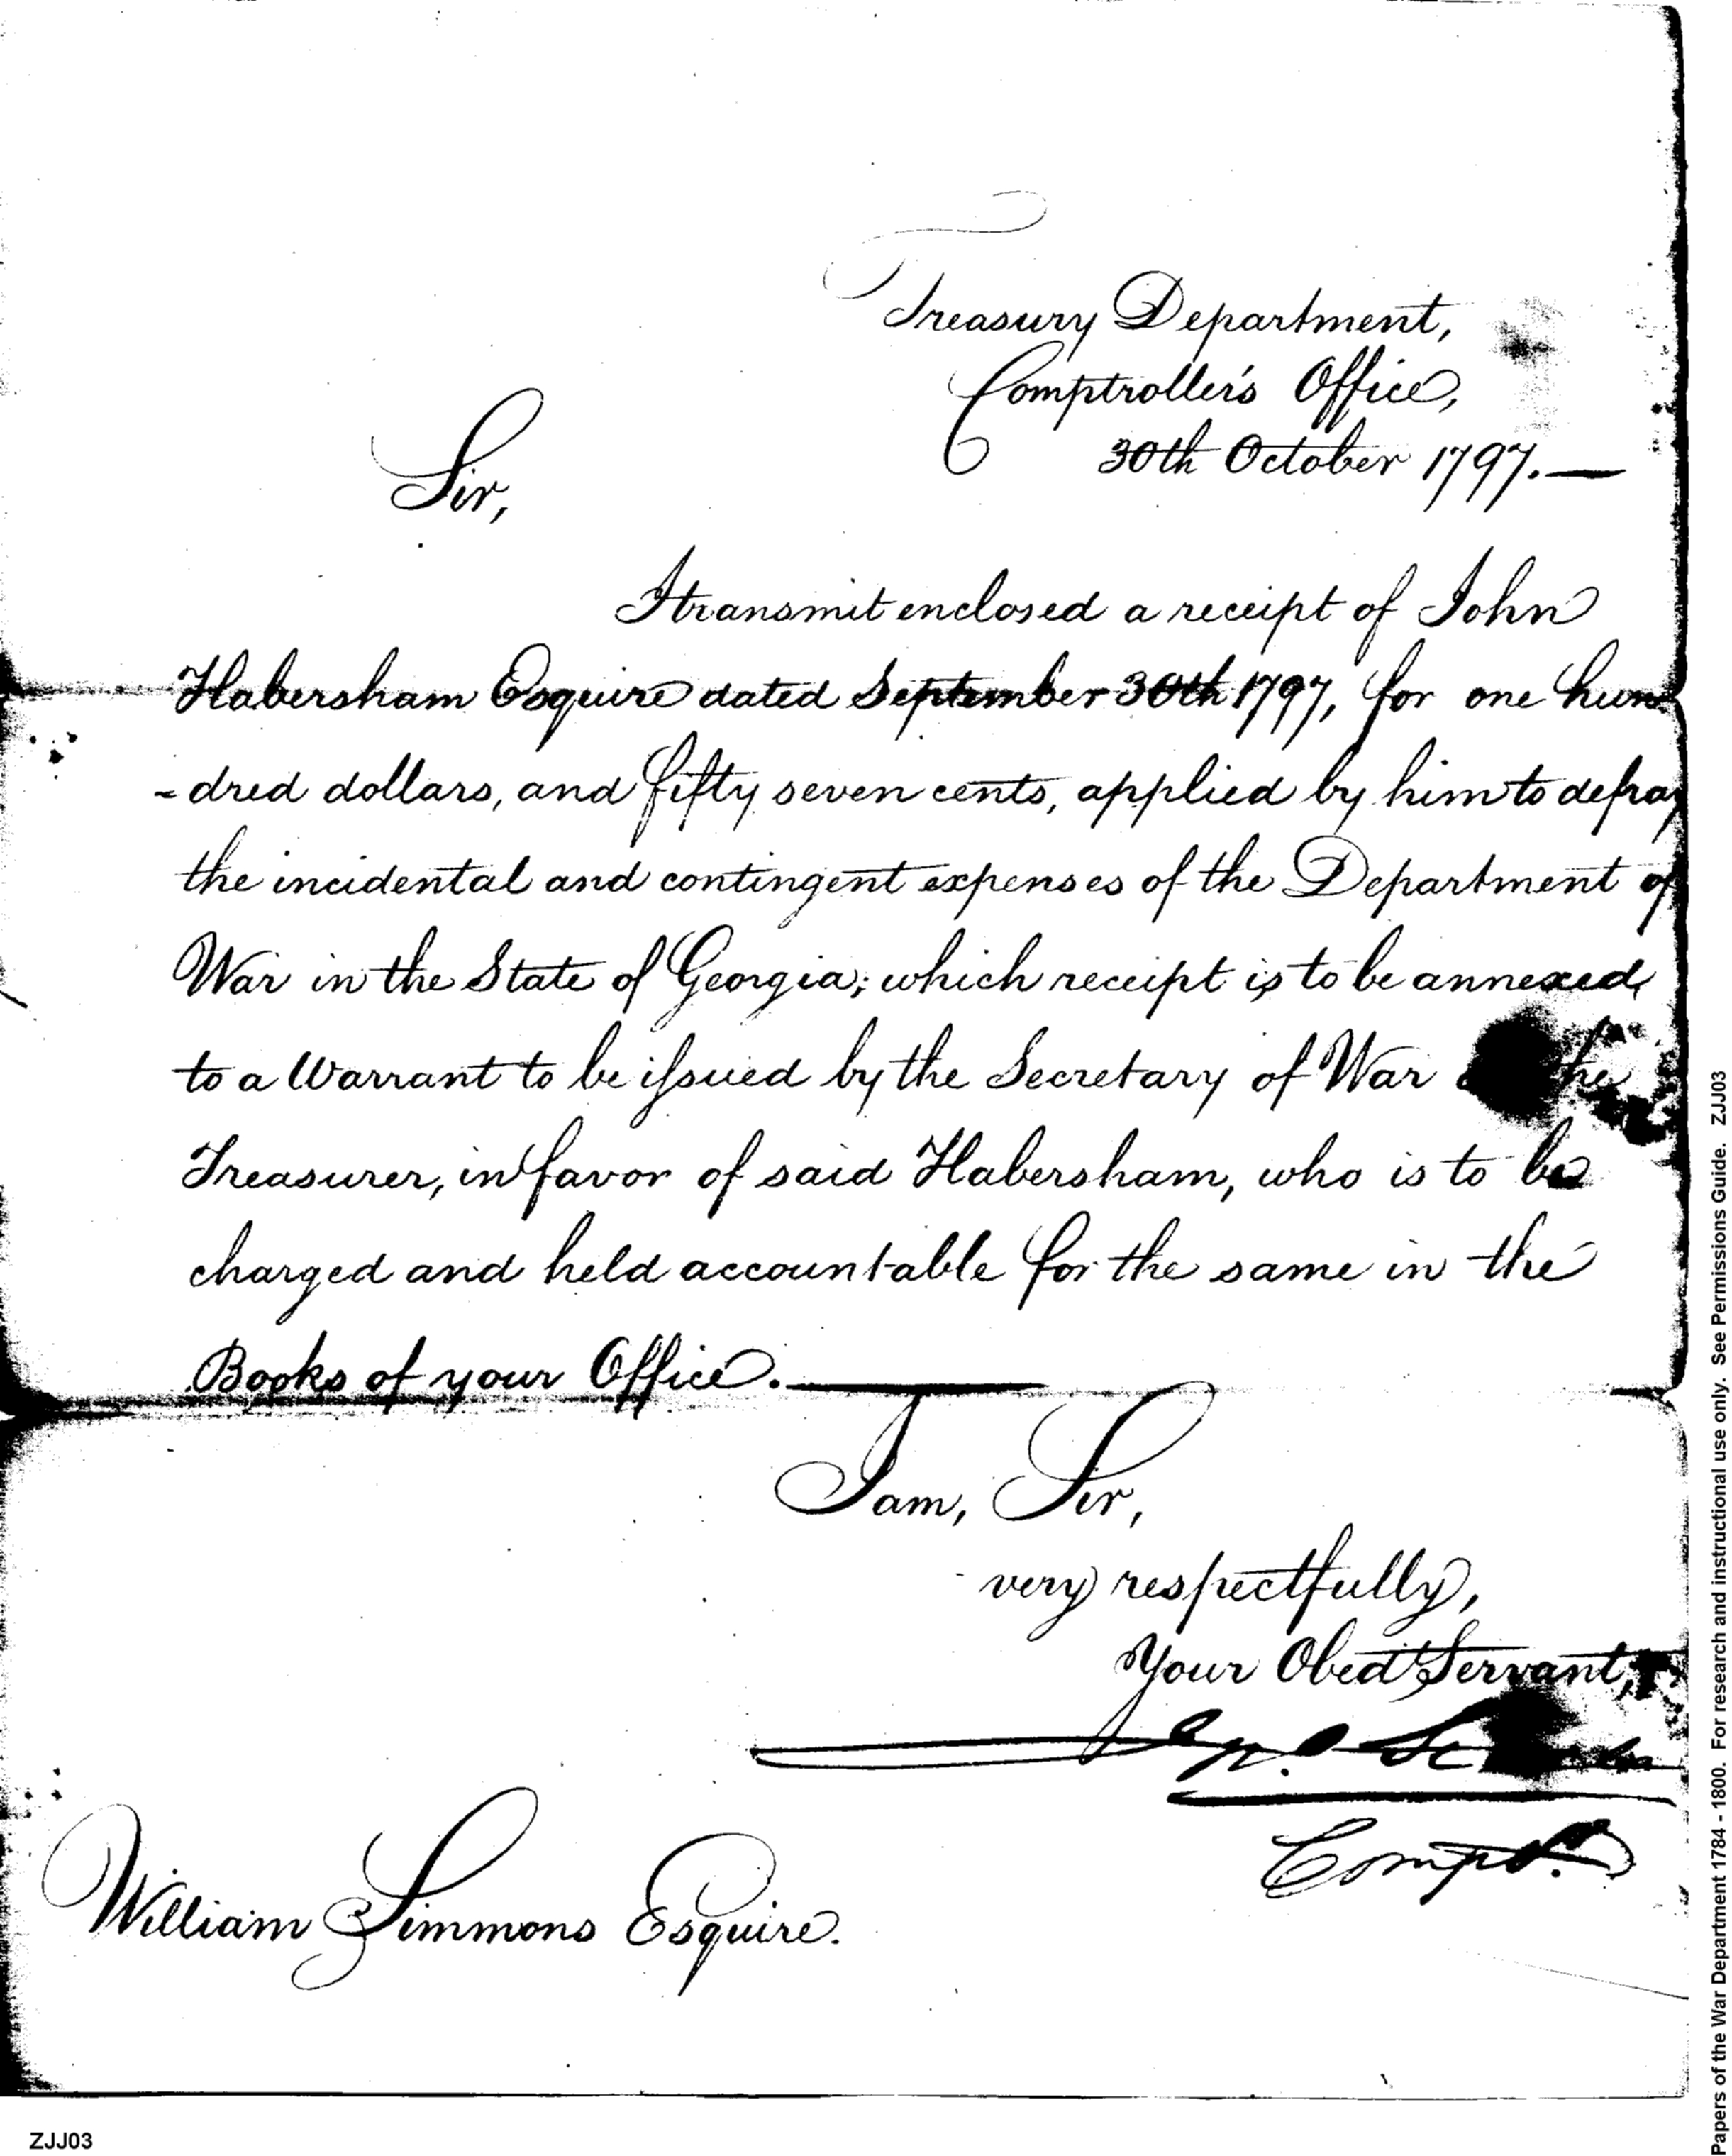 Treasury Department,
Comptroller's Office,
30th October 1797.—
Sir,
I transmit enclosed a receipt of John
Habersham Esquire dated September 30th 1797, for one hun
-dred dollars, and fifty seven cents, applied by him to defray
the incidental and contingent expenses of the Department of
War in the State of Georgia; which receipt is to be annexed,
to a Warrant to be issued by the Secretary of War
Treasurer, in favor of said Habersham, who is to be
charged and held accountable for the same in the
Books of your Office.—
I am, Sir,
very respectfully,
Your Obed Servant,
Jno.
Compt.
William Simmons Esquire.
ZJJ03
Papers of the War Department 1784 - 1800. For research and instructional use only. See Permissions Guide. ZJJ03